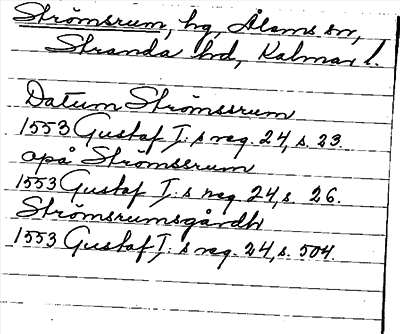 Strömsrum, hg, Ålems sn,
Stranda hd, Kalmar l.
Datum Strömssrum
1553 Gustaf I:s reg. 24, s. 23.
opå Strömssrum
1553 Gustaf I:s reg. 24, s. 26.
Strömsrumsgårdh
1553 Gustaf I:s reg. 24, s. 504.